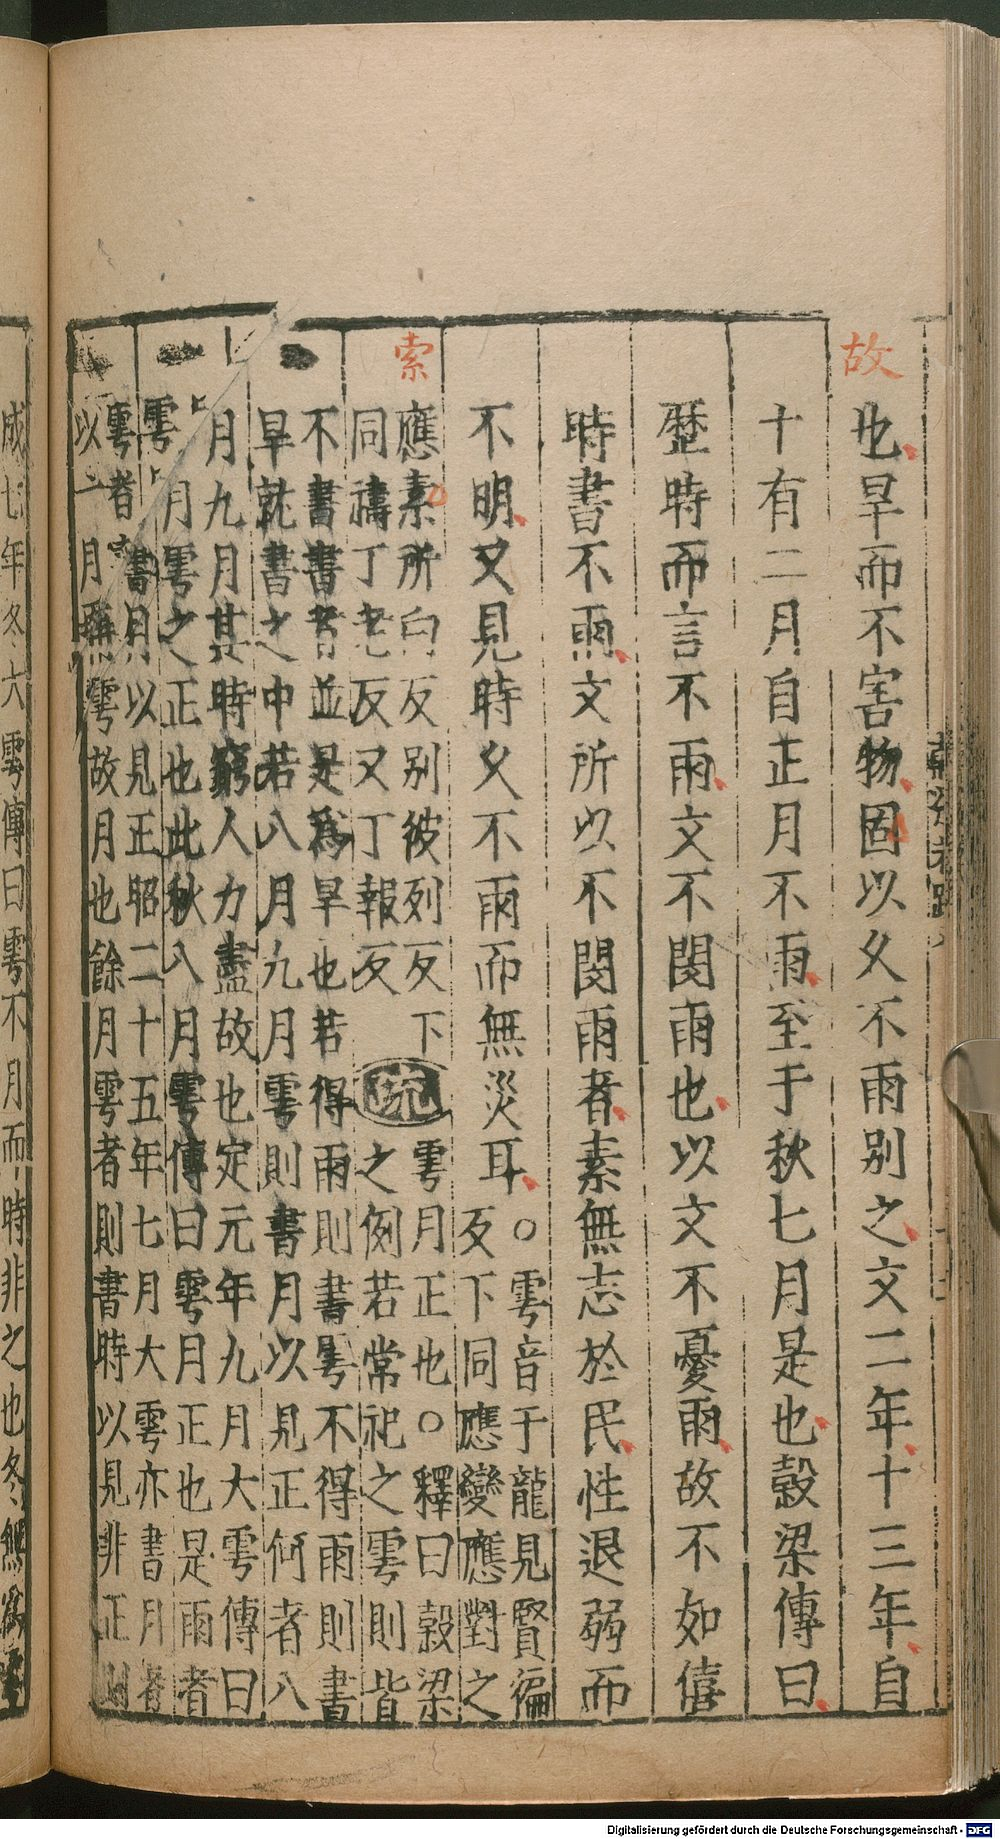 故
也旱而不害物固以久不雨别之文二年十三年自
十有二月自正月不雨至于秋七月是也穀梁傳曰
歷時而言不雨文不閔雨也以文不憂雨故不如僖
時書不雨文所以不閔雨者素無志於民性退弱而
不明又見時久不雨而無災耳
○雩音于龍見賢徧
反下同應變應對之
索
應素所白反别彼列反下
同禱丁老反又丁報反
疏
雩月正也○釋曰穀梁
之例若常祀之雩則皆
不書書者並是為旱也若得雨則書雩不得雨則書
旱就書之中若八月九月雩則書月以見正何者八
月九月其時窮人力盡故也定元年九月大雩傳曰
雩月雩之正也此秋八月雩傳曰雩月正也是雨者
雩者書月以見正昭二十五年七月大雩亦書月者
以二月無雩故月也餘月雩者則書時以見非正則
成七年冬大雩傳曰雩不月而時非之也冬無為雩
Digitalisierung gefördert durch die Deutsche Forschungsgemeinschaft - DFG